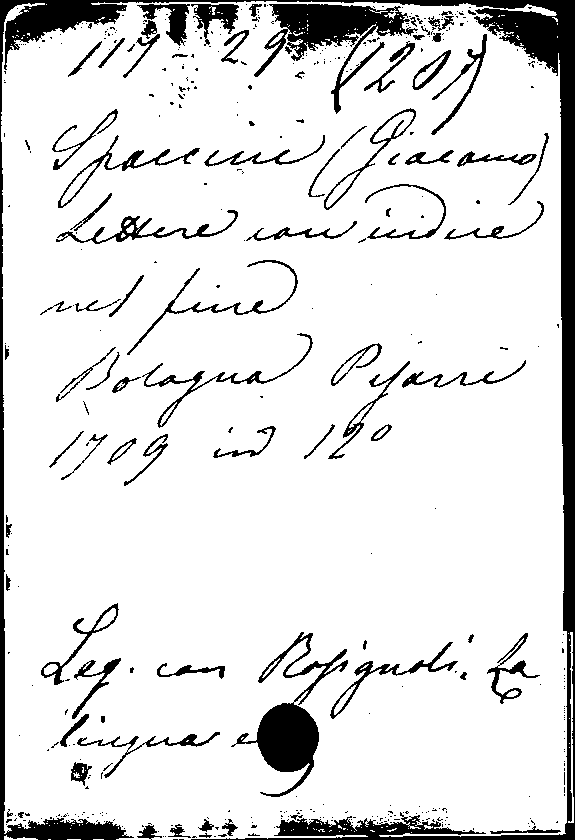 117 - 29 (1207)
Spaccini (Giacomo)
Lettere con indice
nel fine
Bologna Pisarri
1709 in 12º
Leg. con Rosignoli. La
lingua